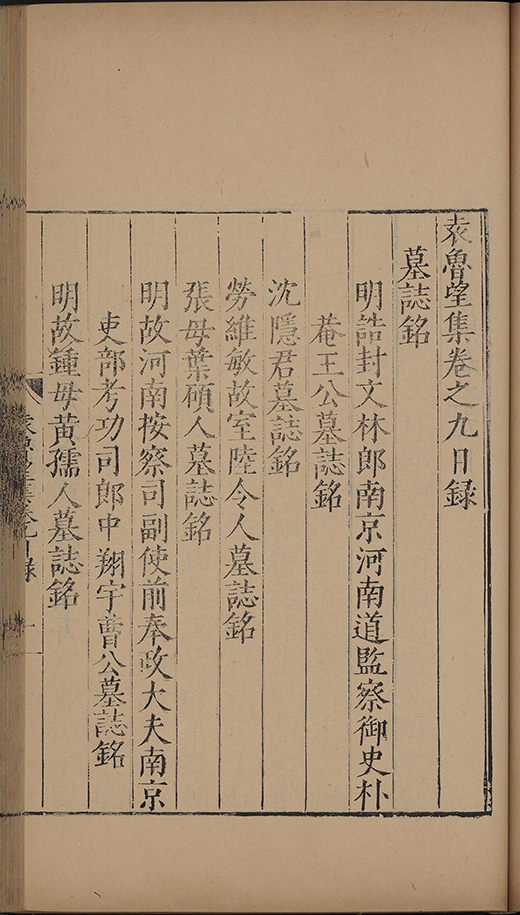 袁魯望集卷之九目録
墓誌銘
明誥封文林郎南京河南道監察御史朴
菴王公墓誌銘
沈隱君墓誌銘
勞維敏故室陸令人墓誌銘
張母葉碩人墓誌銘
明故河南按察司副使前奉政大夫南京
吏部考功司郎中翔宇曹公墓誌銘
明故鍾母黃孺人墓誌銘